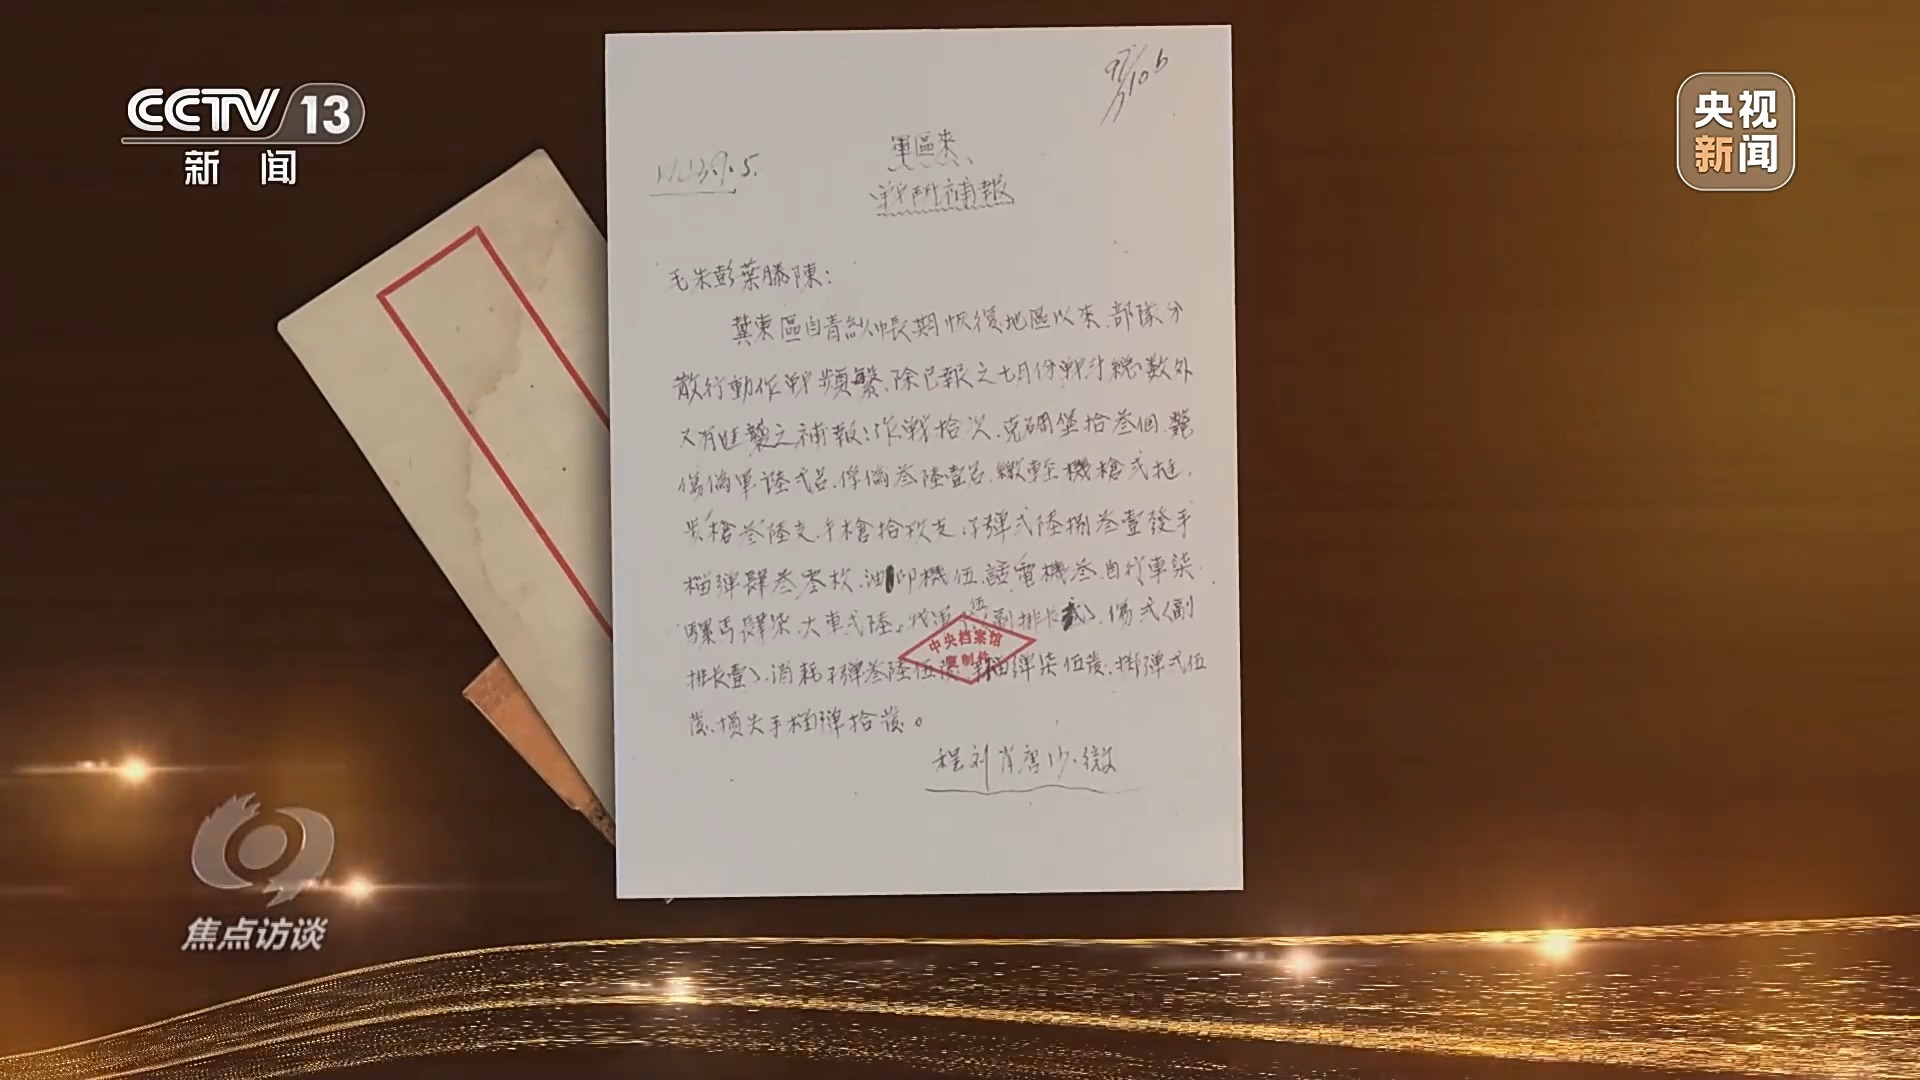 CCTV 13
新闻
央视
新闻
軍區來
戰鬥補報
毛朱彭葉滕陳：
冀東區自青紗帳期恢復地區以來、部隊分
散行動作戰頻繁、除已報之七月份戰鬥總數外
補報：作戰拾次、克碉堡拾叁個、斃
傷偽軍陸弍名、俘偽叁陸壹名、繳輕機槍弍挺、
步槍叁陸支、手槍拾玖支、子彈弍陸捌叁壹發手
榴彈肆叁零枚、油印機伍、話電機叁、自行車柒
騾馬肆柒、大車弍陸。我軍 伍 副排長 、傷弍〈副
排長壹〉、消耗子彈叁陸伍發 榴彈柒伍發、擲彈弍伍
發、損失手榴彈拾發。
中央档案馆
复制件
程刘肖
焦点访谈